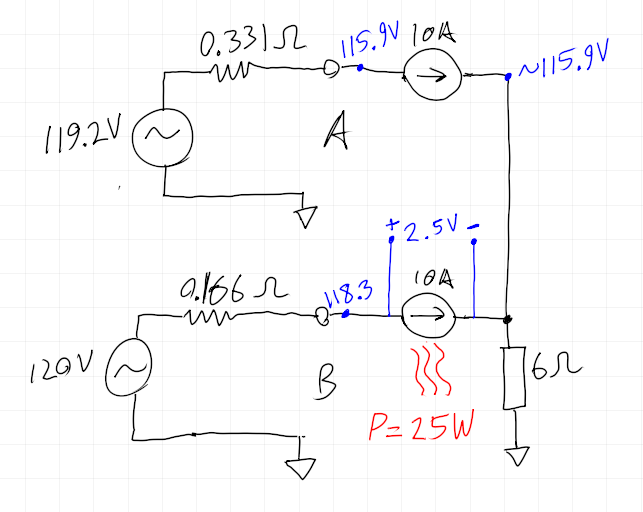 0.331Ω
115.9V
10A
~115.9V
119.2V
A
+ 2.5V -
0.166Ω
118.3
10A
120V
B
6Ω
P=25W